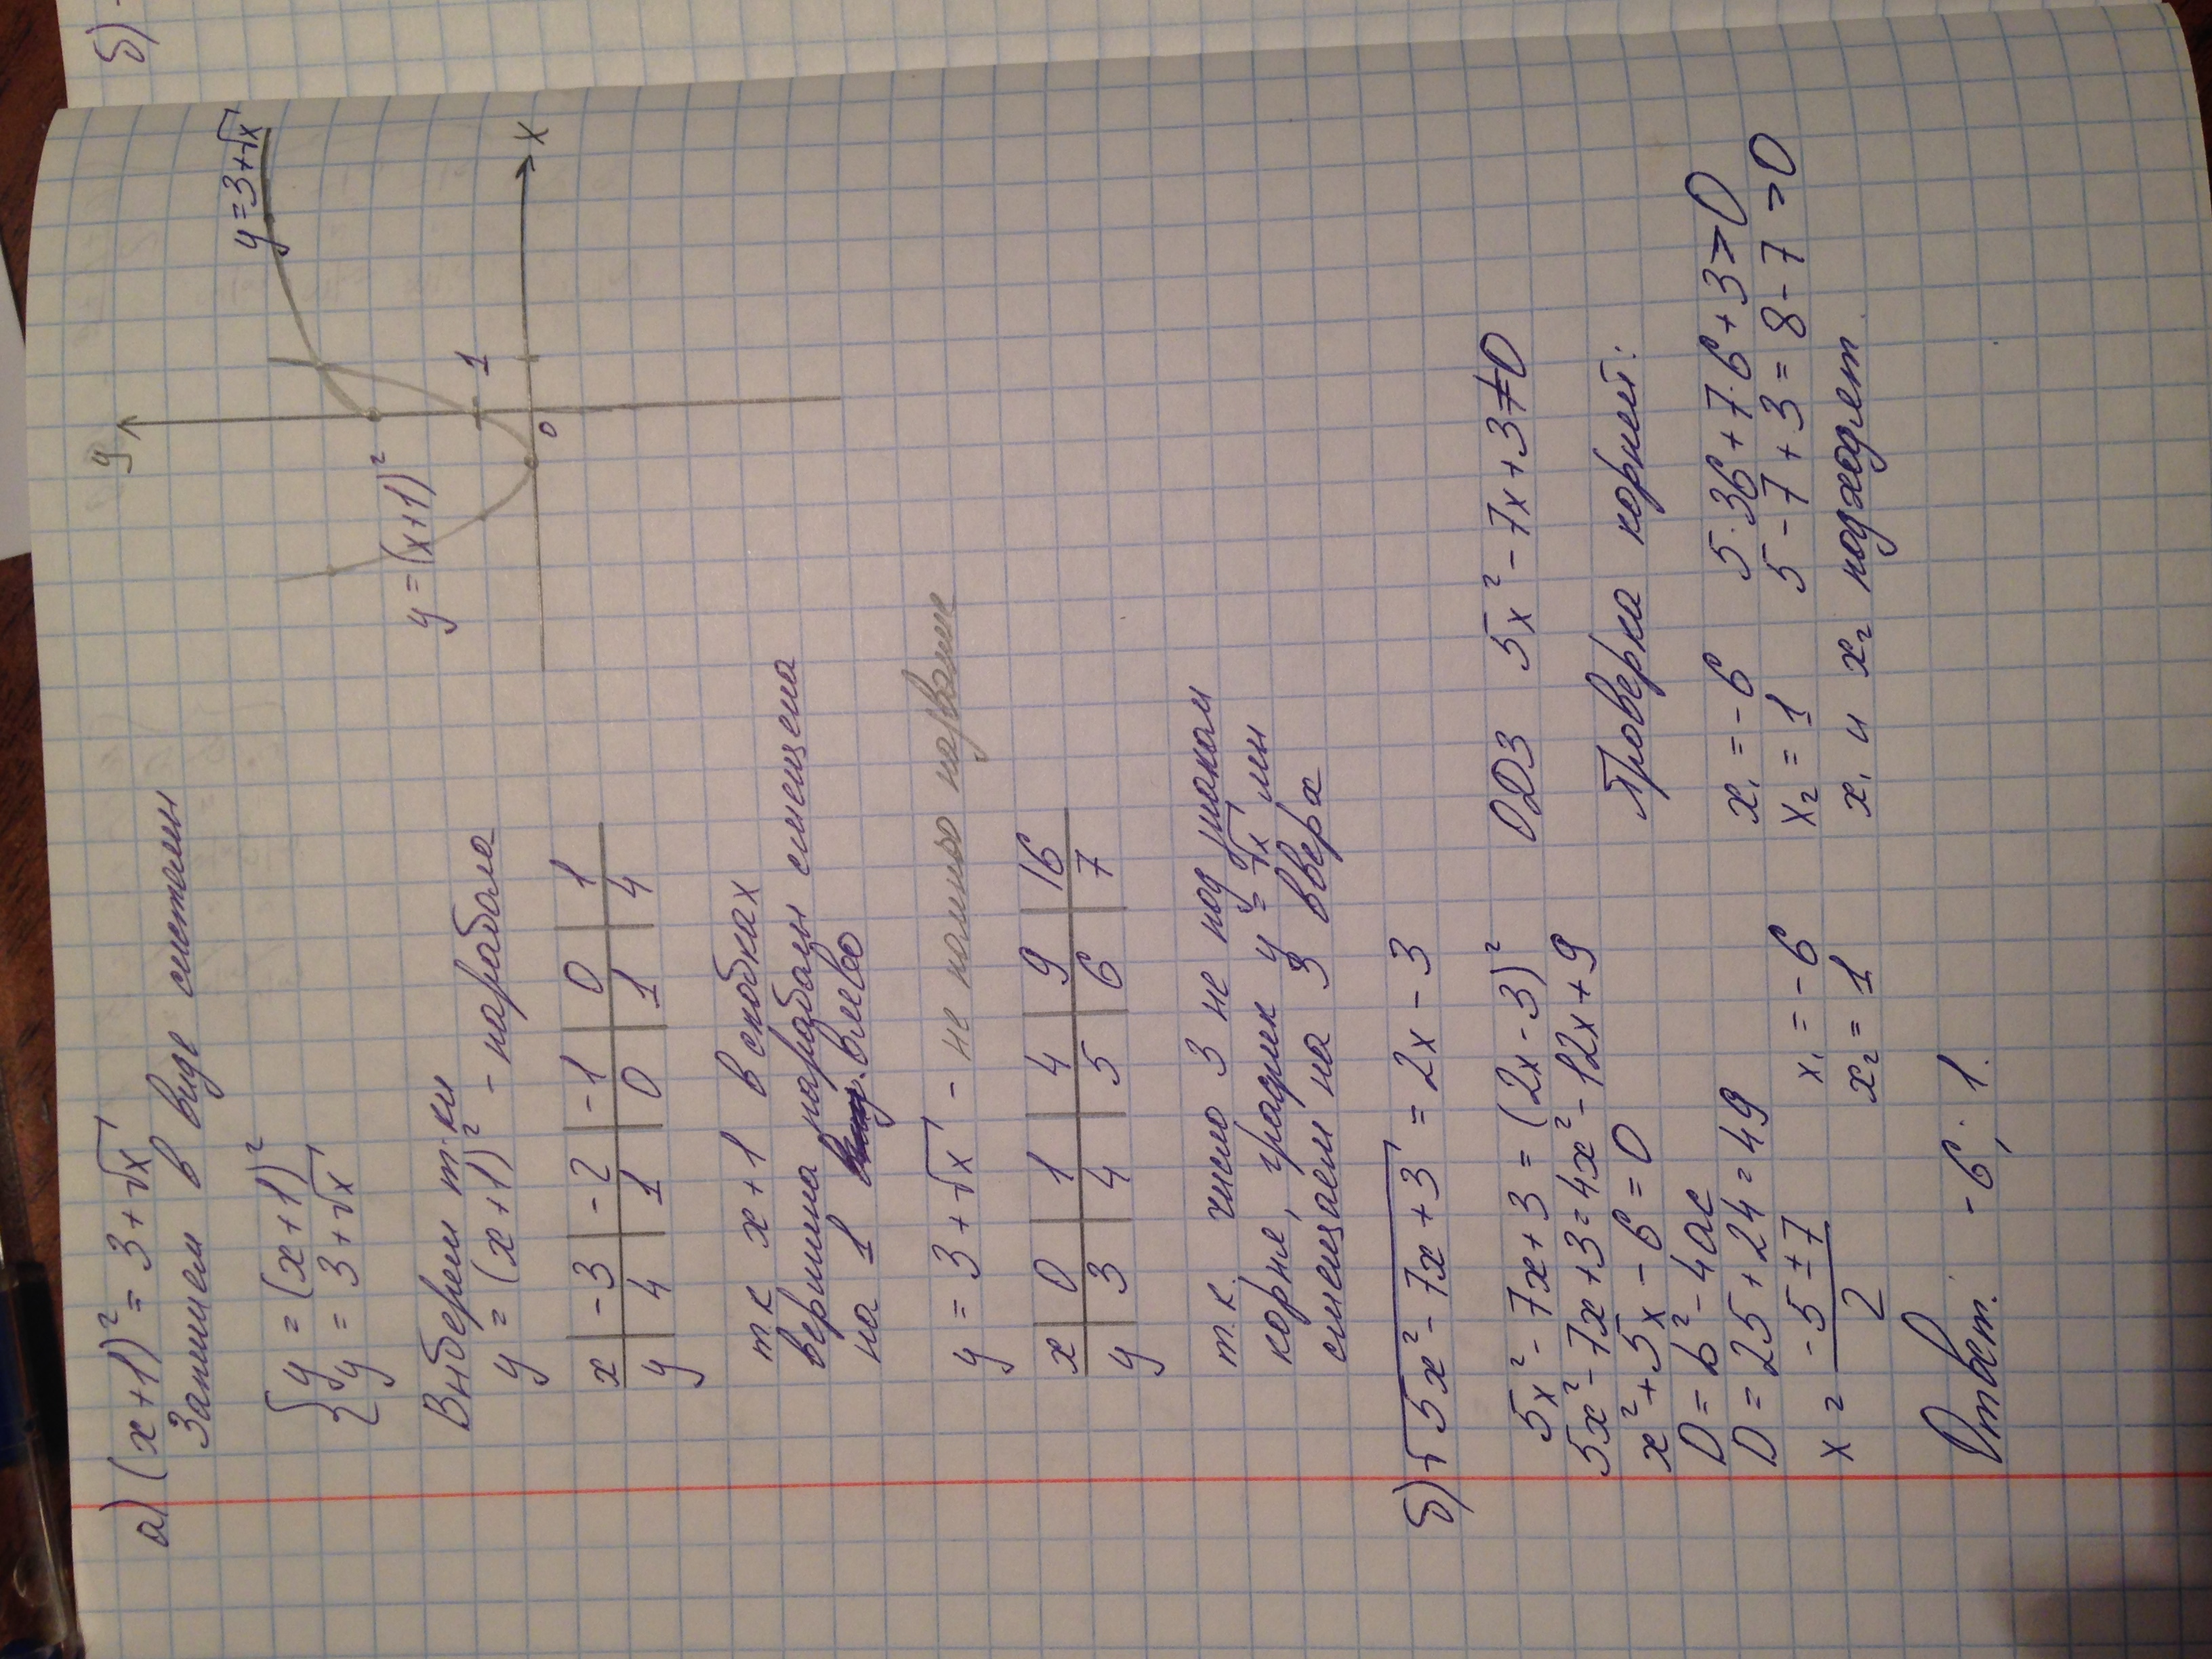 а) (x+1)² = 3+√x
Запишем в виде системы
{ y = (x+1)²
y = 3+√x
Выберем т-ки
y = (x+1)² - парабола
x | -3 | -2 | -1 | 0 | 1
y | 4 | 1 | 0 | 1 | 4
т.к x+1 в скобках
вершина параболы смещена
на 1 влево
y = 3+√x - не помню название
x | 0 | 1 | 4 | 9 | 16
y | 3 | 4 | 5 | 6 | 7
т.к. число 3 не под знаком
корня, график y = √x мы
смещаем на 3 вверх
y
y=3+√x
y=(x+1)²
1
0
x
б) √5x²-7x+3 = 2x-3
5x²-7x+3 = (2x-3)²
5x²-7x+3 = 4x²-12x+9
x²+5x-6=0
D = b²-4ac
D = 25+24=49
x = -5±7 / 2
x₁ = -6
x₂ = 1
ОДЗ 5x²-7x+3≠0
Проверка корней:
x₁ = -6 5·36+7·6+3>0
x₂ = 1 5-7+3=8-7>0
x₁ и x₂ подходят.
Ответ: -6; 1.
б)